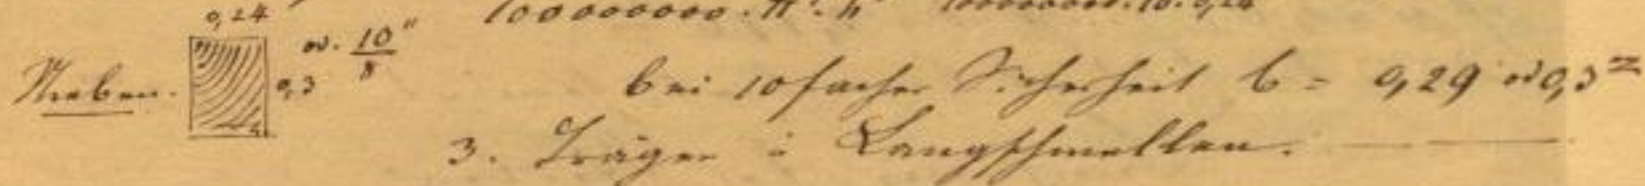 0,24
100000000 . π² . h³   100000000 . 10 . 0,24
od. 10"/8
0,3
Streben.
bei 10facher Sicherheit b = 0,29 od 0,3 m
3. Träger u Langschwellen.